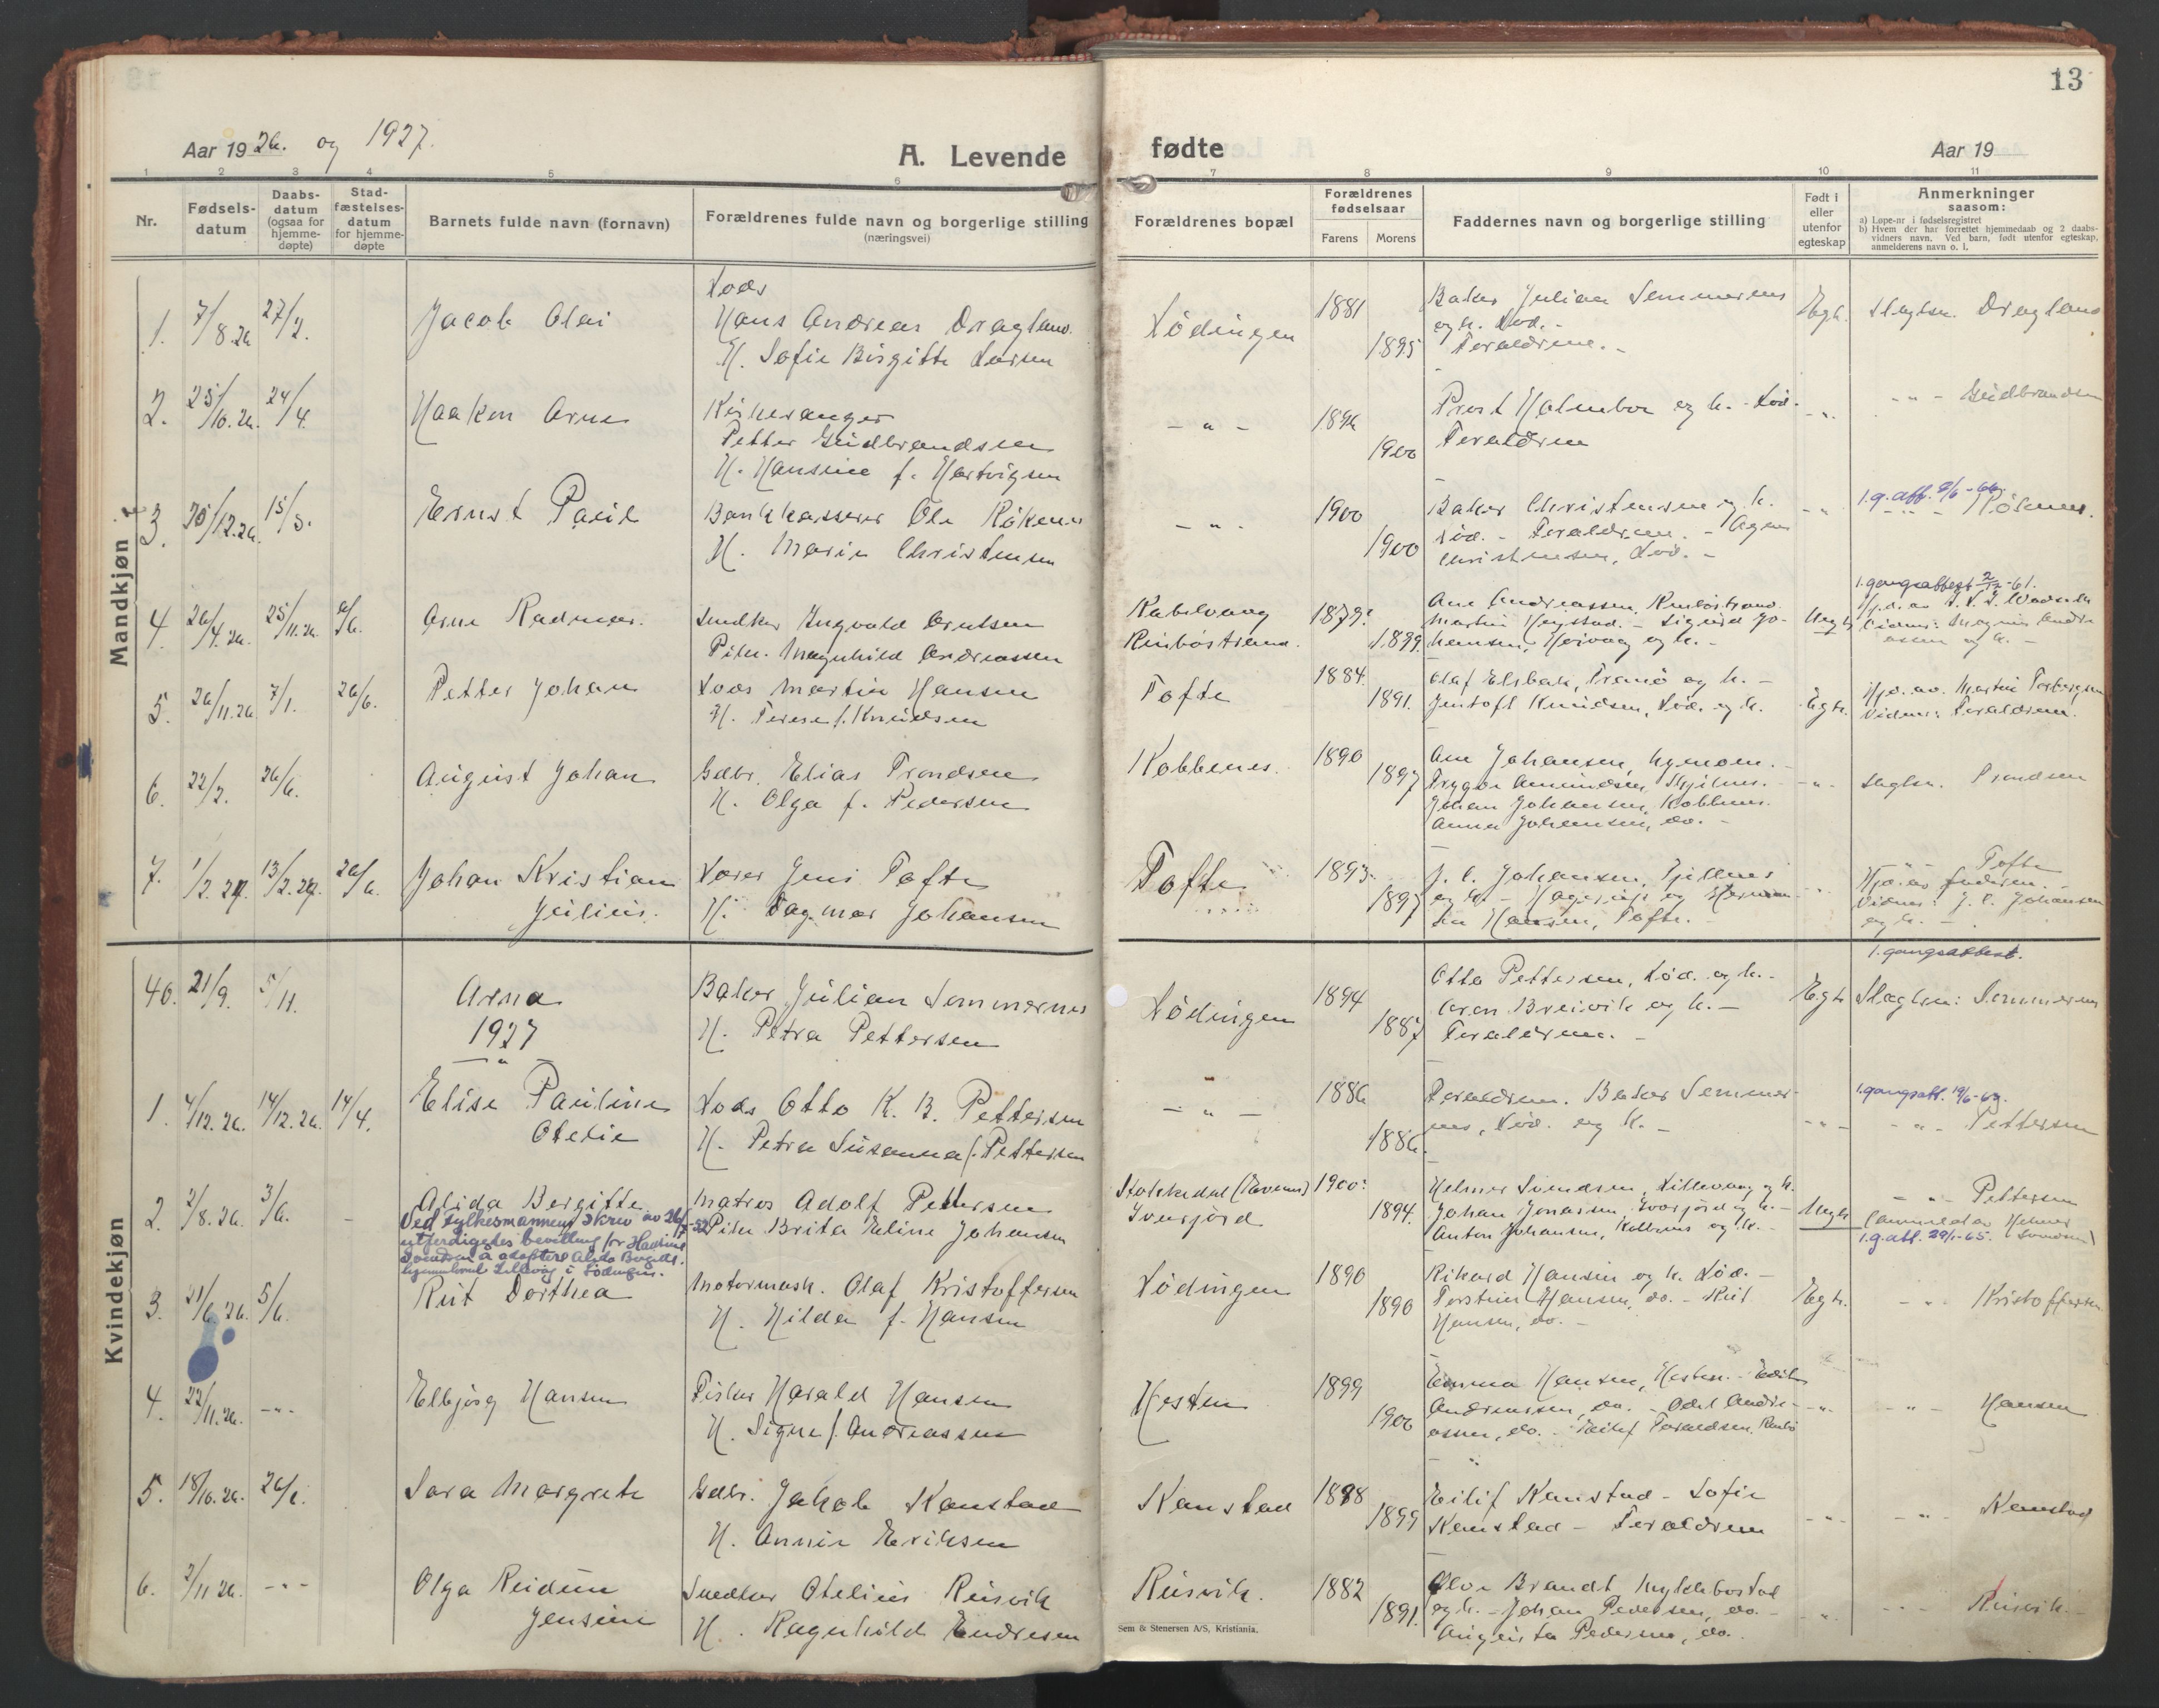 13
Aar 1926. og 1927.
A. Levende fødte
Aar 19
1 2 3 4 5 6 7 8 9 10 11
Nr.
Fødsels-
datum
Daabs-
datum
(ogsaa for
hjemme-
døpte)
Stad-
fæstelses-
datum
for hjemme-
døpte
Barnets fulde navn (fornavn)
Forældrenes fulde navn og borgerlige stilling
(næringsvei)
Forældrenes bopæl
Forældrenes
fødselsaar
Farens Morens
Faddernes navn og borgerlige stilling
Født i
eller
utenfor
egteskap
Anmerkninger
saasom:
a) Løpe-nr i fødselsregistret
b) Hvem der har forrettet hjemmedaab og 2 daabs-
vidners navn. Ved barn, født utenfor egteskap,
anmelderens navn o. l.
Mandkjøn
1. 7/8.26 27/2. Jacob Olai
Lods
Hans Andreas Dragland.
H. Sofie Birgitte Larsen
Lødingen 1881 1895
Baker Julian Semmernes
og h. Lød. -
Forældrene. -
Egt. Slagtsn. Dragland
2. 25/10.26. 24/4. Haakon Arne
Petter Guidbrandsen
H. Hansine f. Hartvigsen
- " - 1896 1900
Prost Holmboe og h. - Lød.
Forældrene
- " - Guidbrandsen
3. 20/12.26. 15/5. Ernst Paul
Bankkasserer Ole Røkenes
H. Marie Christensen
- " - 1900 1900
Baker Christensen og h.
Lød. - Forældrene. - Agnes
Christensen, Lød. -
1.g.att. 9/6-66.
Røkenes.
4. 26/4.26. 25/11.26 6/6. Arne Radmar.
Smedker Ingvald Arntsen
Pike. Magnhild Andreassen
Kabelvaag
Rinbøstrand.
1879? 1899.
Ane Andreassen, Rinbøstrand.
Martin Heystad. - Sigurd Jo-
hansen, Heivag og h. -
Uegt.
1.gangsattest 2/12-61.
5. 26/11.26 7/1. 26/6. Petter Johan
Lods Martin Hansen
H. Terese f. Knudsen
Tofte 1884. 1891.
Olaf Elsbak, Tranø og h. -
Jentoft Knudsen, Lød. og h.
Egt.
Hjd. av. Martin Torbergsen
Vidner: Forældrene.
6. 22/2. 26/6. August Johan
Gdbr. Elias Trondsen
H. Olga f. Pedersen
Kobbenes. 1890 1897
Ane Johansen,
Trygve Amundsen,
Johan Johansen, Kobbenes.
Anna Johansen, do. -
- " - Slagtsn. Trondsen
7. 1/2.27. 13/2.27. 26/6. Johan Kristian
Julius.
Lærer Jens Tofte
H. Dagmar Johansen
Tofte 1893. 1897
J. C. Johansen,
og h. - Hagerup og Herman-
Hansen, Tofte.
- " - Tofte
Vidner: J. C. Johansen
og h. -
Kvindekjøn
40. 21/9. 5/11. Arna
Baker Julian Semmernes
H. Petra Pettersen
Lødingen 1894 1887
Otto Pettersen, Lød. og h. -
Aron Breivik og h. -
Forældrene. -
Egt.
1.gangsattest.
Slagtsn: Semmernes
1927
- " -
1. 4/12.26. 14/12.26. 14/4. Elise Pauline
Otelie
Lods Otto K. B. Pettersen
H. Petra Susanna f. Pettersen
- " - 1886 1886.
Forældrene. Baker Semmer-
nes, Lød. og h. -
- " -
1.gangsatt. 19/6-69.
- " - Pettersen
2. 2/8.26. 3/6. - Alida Bergitte
Ved fylkesmannens skriv av 26/5-52
utferdigedes bevilling for
å adoptere Alida Bergitte.
Matros Adolf Pettersen
Pike Brita Eline Johansen
Svensfjord
1900? 1894.
Helmer Svendsen, Lillevaag og h.
Johan Jonassen, og h. -
Anton Johansen, Kobbenes og h. -
Uegt.
- " - Pettersen
(anmeldt av Helmer
Svendsen)
1.g.att. 29/1-65.
3. 21/6.26. 5/6. Rut Dorthea
Motormask. Olaf Kristoffersen
H. Hilda f. Hansen
Lødingen 1890 1890
Rikard Hansen og h. Lød. -
Torstein Hansen, do. - Rut
Hansen, do. -
Egt. - " - Kristoffersen
4. 22/11.26. - " - Elbjørg Hansen
Fisker Harald Hansen
H. Signe f. Andreassen
Hesten 1899 1900
Emma Hansen, Hesten. - Edit
Andreassen, do. - Odel Andre-
assen, do. -
- " - - " - Hansen
5. 18/10.26. 26/6. Sara Margrete
Gdbr. Jakob Kanstad
H. Annie Eriksen
Kanstad 1898 1899
Eilif Kanstad - Sofie
Kanstad - Forældrene
- " - - " - Kanstad
6. 2/11 26. - " - Olga Reidun
Jensine
Smedker Otelius Rusvik
H. Ragnhild Endresen
Rusvik. 1882 1891.
Brandt,
og h. - Johan Pedersen, do. -
Augusta Pedersen, do.
- " - - " - Rusvik.
Sem & Stenersen A/S, Kristiania.